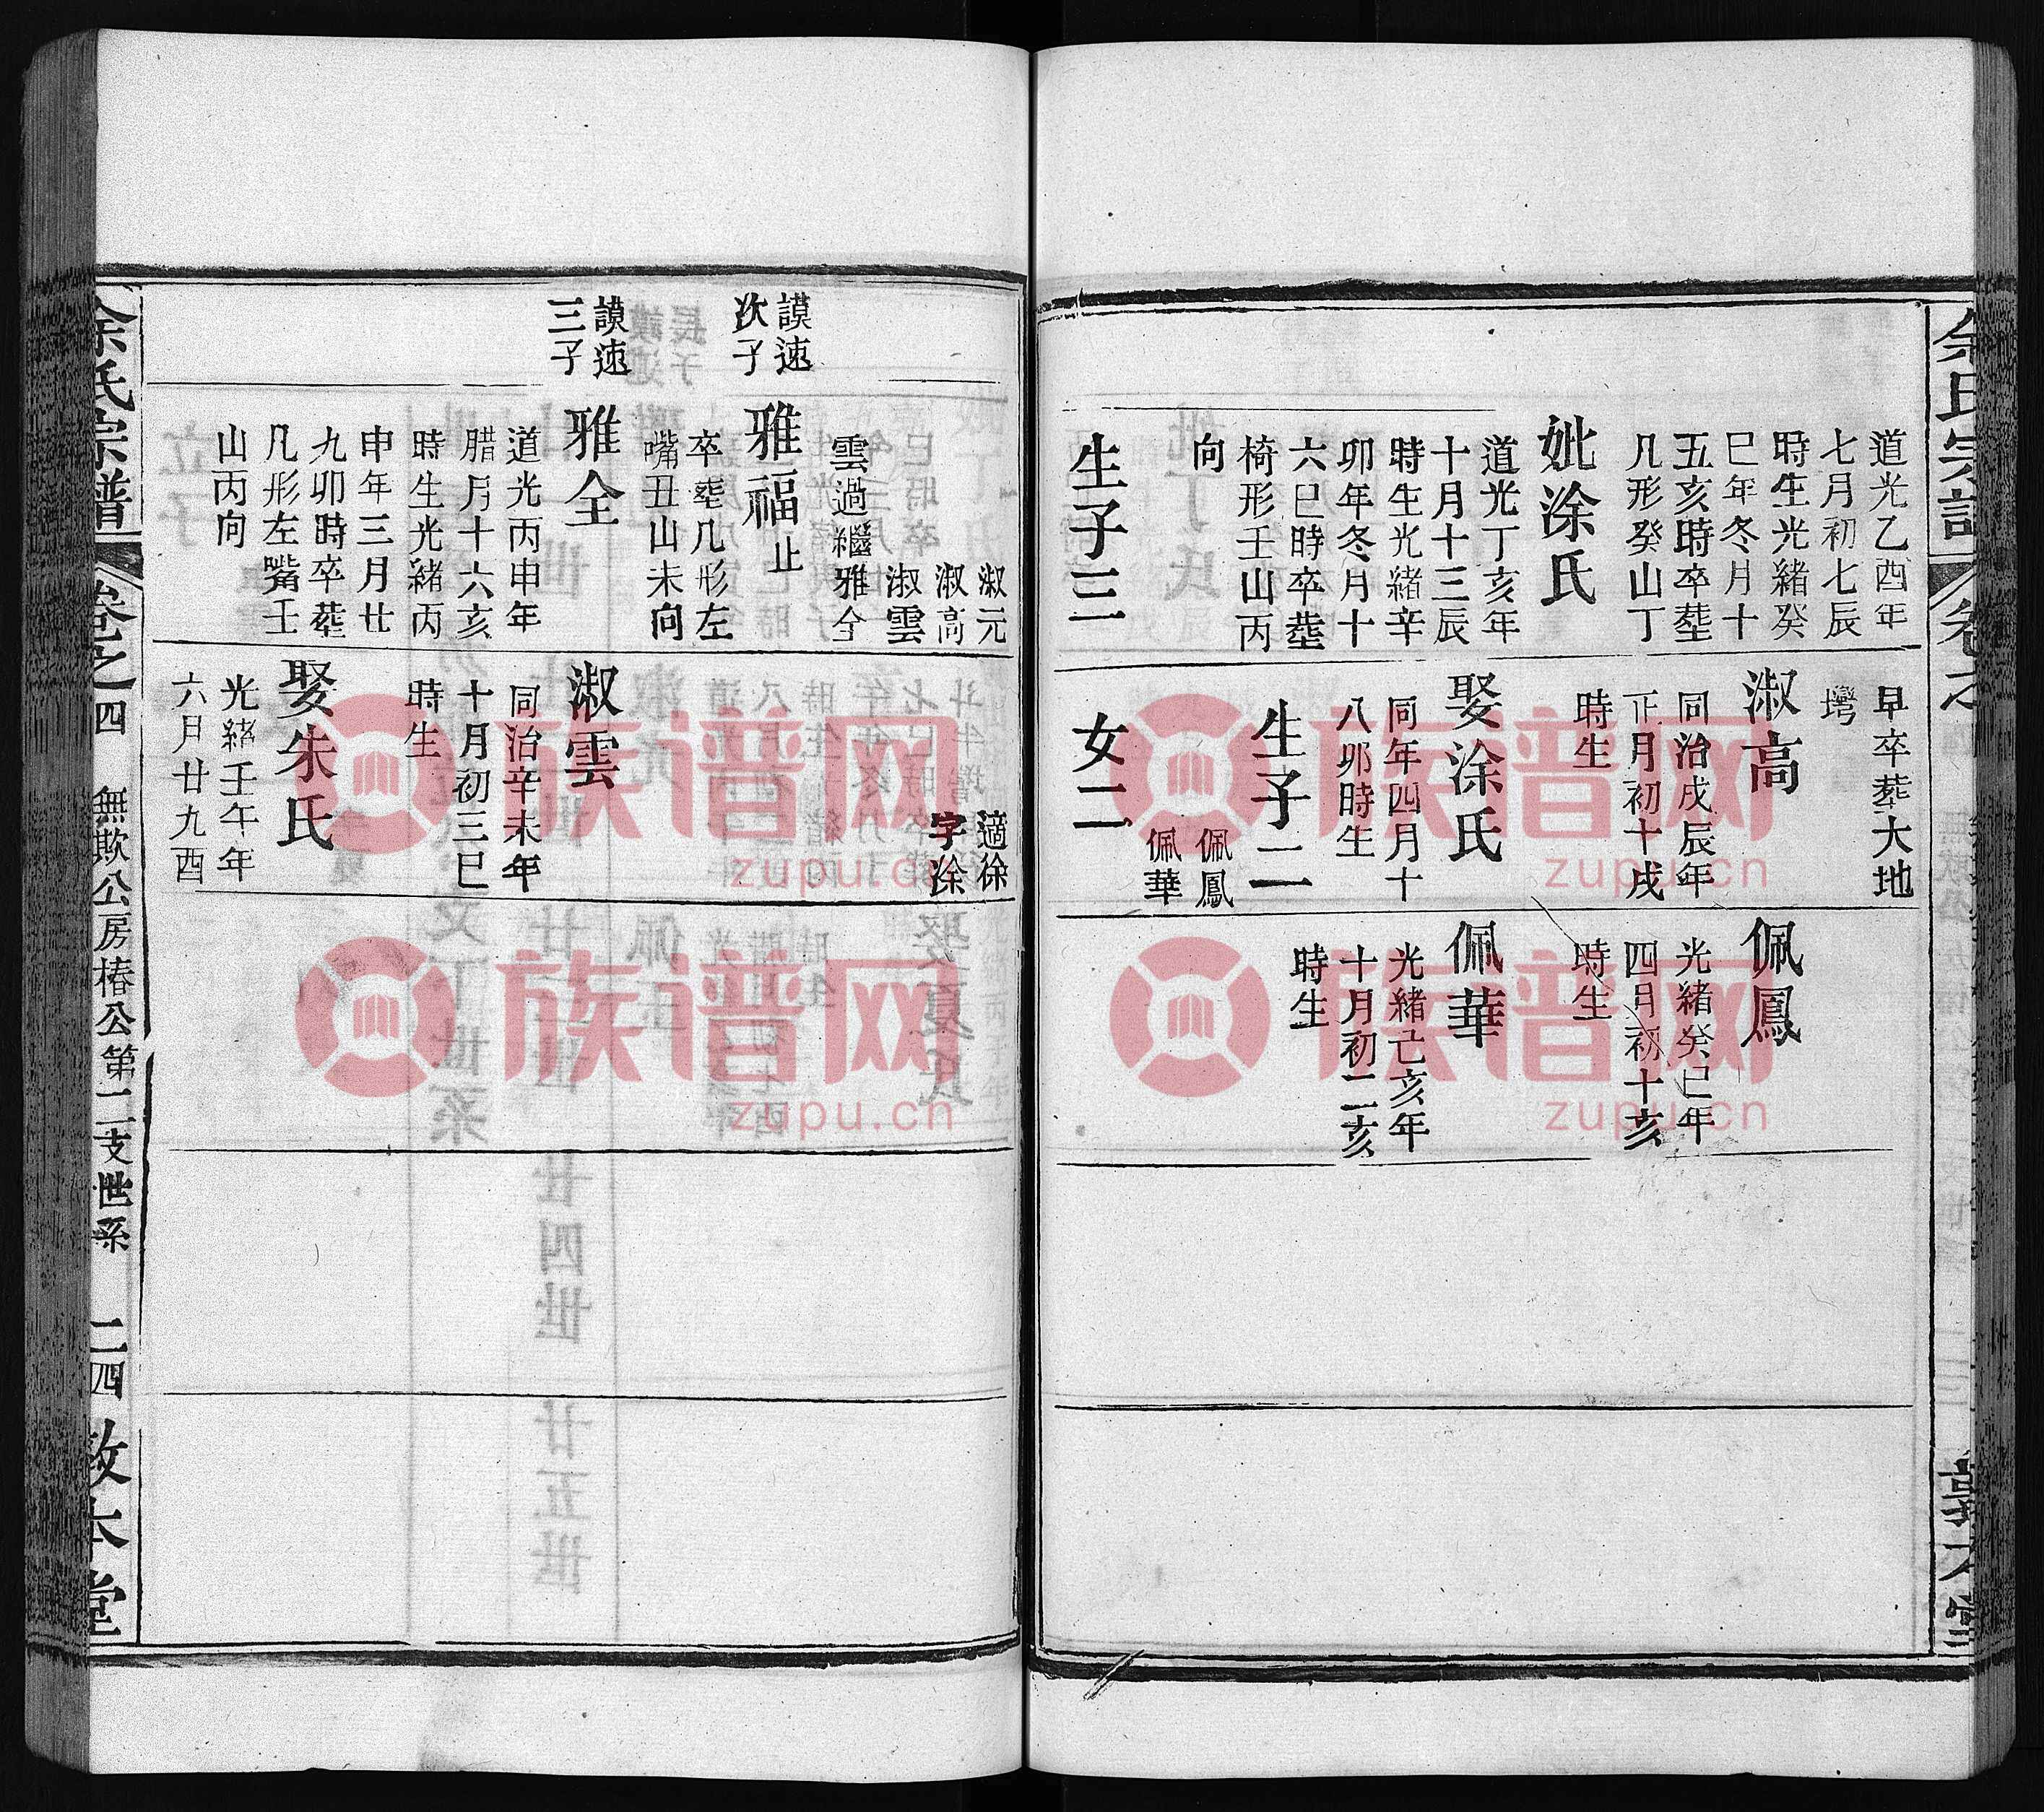 余氏宗譜
道光乙酉年
七月初七辰
時生光緒癸
巳年冬月十
五亥時卒塟
几形癸山丁
妣涂氏
道光丁亥年
十月十三辰
時生光緒辛
卯年冬月十
六巳時卒塟
椅形壬山丙
向
生子三
早卒塟大地
塆
淑高
同治戊辰年
正月初十戌
時生
娶涂氏
同年四月十
八卯時生
生子二
佩鳳
佩華
女二
佩鳳
光緒癸巳年
四月初十亥
時生
佩華
光緒己亥年
十月初二亥
時生
謨速
次子
謨速
三子
淑元
淑高
淑雲
雲過繼雅全
雅福止
卒塟几形左
嘴丑山未向
雅全
道光丙申年
腊月十六亥
時生光緒丙
申年三月廿
九卯時卒塟
几形左嘴壬
山丙向
適徐
字涂
淑雲
同治辛未年
十月初三巳
時生
娶朱氏
光緒壬午年
六月廿九酉
余氏宗譜
卷之四
無欺公房椿公第二支世系
二四
敦本堂
族谱网
zupu.cn
族谱网
zupu.cn
族谱网
zupu.cn
族谱网
zupu.cn